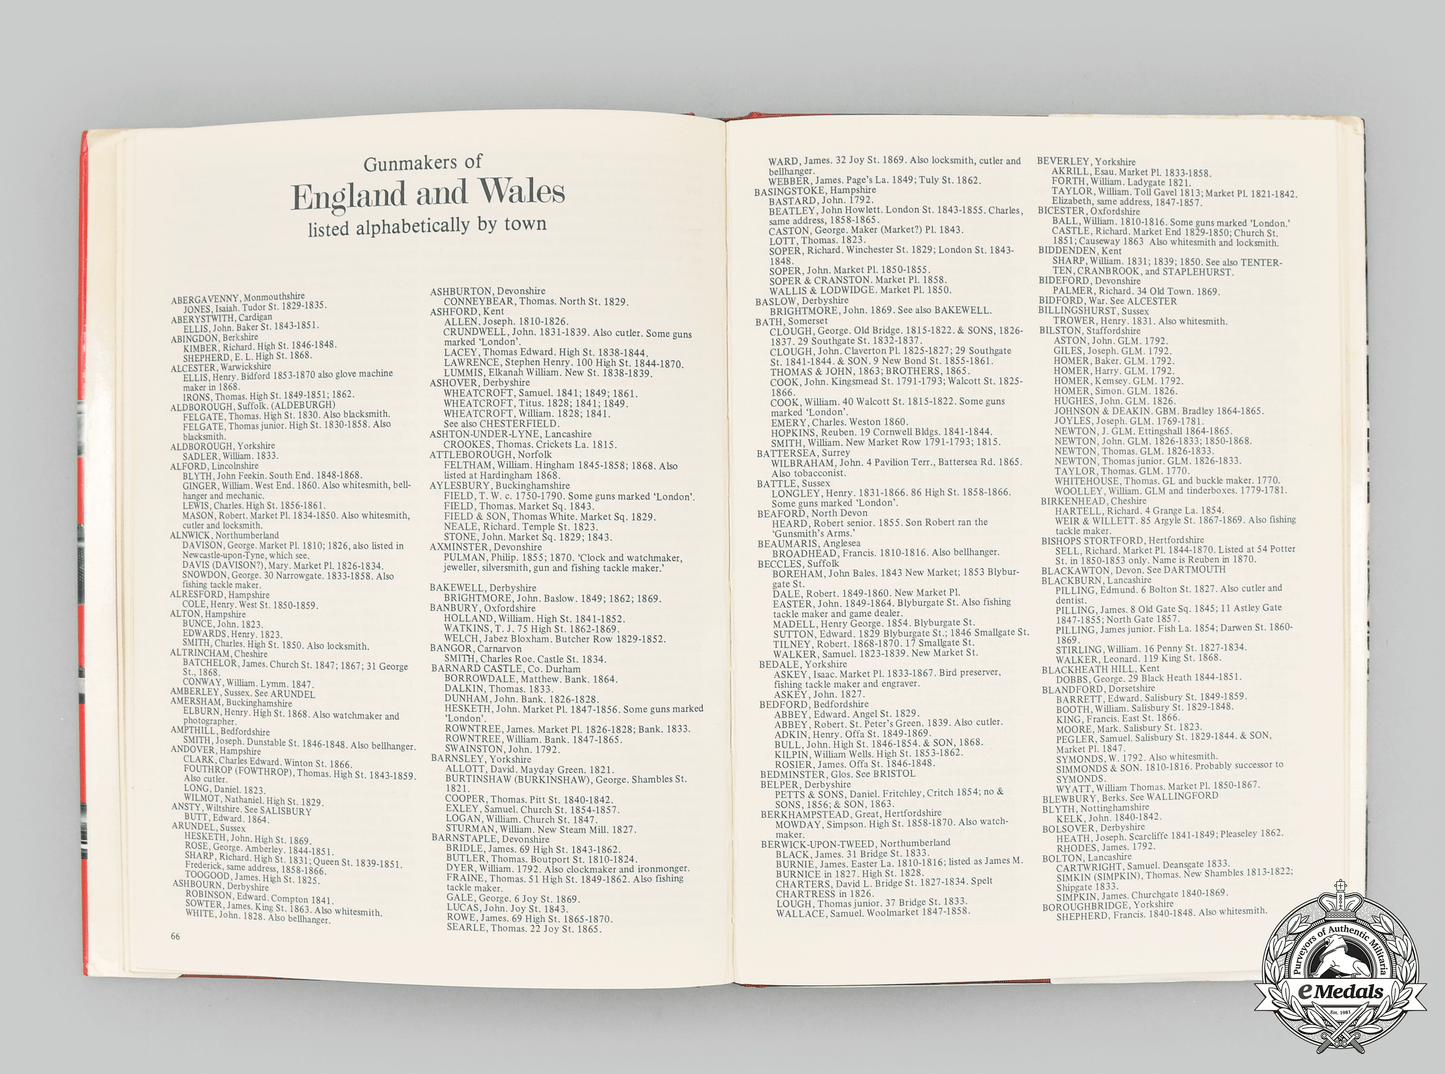 Gunmakers of
England and Wales
listed alphabetically by town
ABERGAVENNY, Monmouthshire
JONES, Isaiah. Tudor St. 1829-1835.
ABERYSTWITH, Cardigan
ELLIS, John. Baker St. 1843-1851.
ABINGDON, Berkshire
KIMBER, Richard. High St. 1846-1848.
SHEPHERD, E. L. High St. 1868.
ALCESTER, Warwickshire
ELLIS, Henry. Bidford 1853-1870 also glove machine
maker in 1868.
IRONS, Thomas. High St. 1849-1851; 1862.
ALDBOROUGH, Suffolk. (ALDEBURGH)
FELGATE, Thomas. High St. 1830. Also blacksmith.
FELGATE, Thomas junior. High St. 1830-1858. Also
blacksmith.
ALDBOROUGH, Yorkshire
SADLER, William. 1833.
ALFORD, Lincolnshire
BLYTH, John Feekin. South End. 1848-1868.
GINGER, William. West End. 1860. Also whitesmith, bell-
hanger and mechanic.
LEWIS, Charles. High St. 1856-1861.
MASON, Robert. Market Pl. 1834-1850. Also whitesmith,
cutler and locksmith.
ALNWICK, Northumberland
DAVISON, George. Market Pl. 1810; 1826, also listed in
Newcastle-upon-Tyne, which see.
DAVIS (DAVISON?), Mary. Market Pl. 1826-1834.
SNOWDON, George. 30 Narrowgate. 1833-1858. Also
fishing tackle maker.
ALRESFORD, Hampshire
COLE, Henry. West St. 1850-1859.
ALTON, Hampshire
BUNCE, John. 1823.
EDWARDS, Henry. 1823.
SMITH, Charles. High St. 1850. Also locksmith.
ALTRINCHAM, Cheshire
BATCHELOR, James. Church St. 1847; 1867; 31 George
St., 1868.
CONWAY, William. Lymm. 1847.
AMBERLEY, Sussex. See ARUNDEL
AMERSHAM, Buckinghamshire
ELBURN, Henry. High St. 1868. Also watchmaker and
photographer.
AMPTHILL, Bedfordshire
SMITH, Joseph. Dunstable St. 1846-1848. Also bellhanger.
ANDOVER, Hampshire
CLARK, Charles Edward. Winton St. 1866.
FOUTHROP (FOWTHROP), Thomas. High St. 1843-1859.
Also cutler.
LONG, Daniel. 1823.
WILMOT, Nathaniel. High St. 1829.
ANSTY, Wiltshire. See SALISBURY
BUTT, Edward. 1864.
ARUNDEL, Sussex
HESKETH, John. High St. 1869.
ROSE, George. Amberley. 1844-1851.
SHARP, Richard. High St. 1831; Queen St. 1839-1851.
Frederick, same address, 1858-1866.
TOOGOOD, James. High St. 1825.
ASHBOURN, Derbyshire
ROBINSON, Edward. Compton 1841.
SOWTER, James. King St. 1863. Also whitesmith.
WHITE, John. 1828. Also bellhanger.
66
ASHBURTON, Devonshire
CONNEYBEAR, Thomas. North St. 1829.
ASHFORD, Kent
ALLEN, Joseph. 1810-1826.
CRUNDWELL, John. 1831-1839. Also cutler. Some guns
marked 'London'.
LACEY, Thomas Edward. High St. 1838-1844.
LAWRENCE, Stephen Henry. 100 High St. 1844-1870.
LUMMIS, Elkanah William. New St. 1838-1839.
ASHOVER, Derbyshire
WHEATCROFT, Samuel. 1841; 1849; 1861.
WHEATCROFT, Titus. 1828; 1841; 1849.
WHEATCROFT, William. 1828; 1841.
See also CHESTERFIELD.
ASHTON-UNDER-LYNE, Lancashire
CROOKES, Thomas. Crickets La. 1815.
ATTLEBOROUGH, Norfolk
FELTHAM, William. Hingham 1845-1858; 1868. Also
listed at Hardingham 1868.
AYLESBURY, Buckinghamshire
FIELD, T. W. c. 1750-1790. Some guns marked 'London'.
FIELD, Thomas. Market Sq. 1843.
FIELD & SON, Thomas White. Market Sq. 1829.
NEALE, Richard. Temple St. 1823.
STONE, John. Market Sq. 1829; 1843.
AXMINSTER, Devonshire
PULMAN, Philip. 1855; 1870. 'Clock and watchmaker,
jeweller, silversmith, gun and fishing tackle maker.'
BAKEWELL, Derbyshire
BRIGHTMORE, John. Baslow. 1849; 1862; 1869.
BANBURY, Oxfordshire
HOLLAND, William. High St. 1841-1852.
WATKINS, T. J. 75 High St. 1862-1869.
WELCH, Jabez Bloxham. Butcher Row 1829-1852.
BANGOR, Carnarvon
SMITH, Charles Roe. Castle St. 1834.
BARNARD CASTLE, Co. Durham
BORROWDALE, Matthew. Bank. 1864.
DALKIN, Thomas. 1833.
DUNHAM, John. Bank. 1826-1828.
HESKETH, John. Market Pl. 1847-1856. Some guns marked
'London'.
ROWNTREE, James. Market Pl. 1826-1828; Bank. 1833.
ROWNTREE, William. Bank. 1847-1865.
SWAINSTON, John. 1792.
BARNSLEY, Yorkshire
ALLOTT, David. Mayday Green. 1821.
BURTINSHAW (BURKINSHAW), George. Shambles St.
1821.
COOPER, Thomas. Pitt St. 1840-1842.
EXLEY, Samuel. Church St. 1854-1857.
LOGAN, William. Church St. 1847.
STURMAN, William. New Steam Mill. 1827.
BARNSTAPLE, Devonshire
BRIDLE, James. 69 High St. 1843-1862.
BUTLER, Thomas. Boutport St. 1810-1824.
DYER, William. 1792. Also clockmaker and ironmonger.
FRAINE, Thomas. 51 High St. 1849-1862. Also fishing
tackle maker.
GALE, George. 6 Joy St. 1869.
LUCAS, John. Joy St. 1843.
ROWE, James. 69 High St. 1865-1870.
SEARLE, Thomas. 22 Joy St. 1865.
WARD, James. 32 Joy St. 1869. Also locksmith, cutler and
bellhanger.
WEBBER, James. Page's La. 1849; Tuly St. 1862.
BASINGSTOKE, Hampshire
BASTARD, John. 1792.
BEATLEY, John Howlett. London St. 1843-1855. Charles,
same address, 1858-1865.
CASTON, George. Maker (Market?) Pl. 1843.
LOTT, Thomas. 1823.
SOPER, Richard. Winchester St. 1829; London St. 1843-
1848.
SOPER, John. Market Pl. 1850-1855.
SOPER & CRANSTON. Market Pl. 1858.
WALLIS & LODWIDGE. Market Pl. 1850.
BASLOW, Derbyshire
BRIGHTMORE, John. 1869. See also BAKEWELL.
BATH, Somerset
CLOUGH, George. Old Bridge. 1815-1822. & SONS, 1826-
1837. 29 Southgate St. 1832-1837.
CLOUGH, John. Claverton Pl. 1825-1827; 29 Southgate
St. 1841-1844. & SON. 9 New Bond St. 1855-1861.
THOMAS & JOHN, 1863; BROTHERS, 1865.
COOK, John. Kingsmead St. 1791-1793; Walcott St. 1825-
1866.
COOK, William. 40 Walcott St. 1815-1822. Some guns
marked 'London'.
EMERY, Charles. Weston 1860.
HOPKINS, Reuben. 19 Cornwell Bldgs. 1841-1844.
SMITH, William. New Market Row 1791-1793; 1815.
BATTERSEA, Surrey
WILBRAHAM, John. 4 Pavilion Terr., Battersea Rd. 1865.
Also tobacconist.
BATTLE, Sussex
LONGLEY, Henry. 1831-1866. 86 High St. 1858-1866.
Some guns marked 'London'.
BEAFORD, North Devon
HEARD, Robert senior. 1855. Son Robert ran the
'Gunsmith's Arms.'
BEAUMARIS, Anglesea
BROADHEAD, Francis. 1810-1816. Also bellhanger.
BECCLES, Suffolk
BOREHAM, John Bales. 1843 New Market; 1853 Blybur-
gate St.
DALE, Robert. 1849-1860. New Market Pl.
EASTER, John. 1849-1864. Blyburgate St. Also fishing
tackle maker and game dealer.
MADELL, Henry George. 1854. Blyburgate St.
SUTTON, Edward. 1829 Blyburgate St.; 1846 Smallgate St.
TILNEY, Robert. 1868-1870. 17 Smallgate St.
WALKER, Samuel. 1823-1839. New Market St.
BEDALE, Yorkshire
ASKEY, Isaac. Market Pl. 1833-1867. Bird preserver,
fishing tackle maker and engraver.
ASKEY, John. 1827.
BEDFORD, Bedfordshire
ABBEY, Edward. Angel St. 1829.
ABBEY, Robert. St. Peter's Green. 1839. Also cutler.
ADKIN, Henry. Offa St. 1849-1869.
BULL, John. High St. 1846-1854. & SON, 1868.
KILPIN, William Wells. High St. 1853-1862.
ROSIER, James. Offa St. 1846-1848.
BEDMINSTER, Glos. See BRISTOL
BELPER, Derbyshire
PETTS & SONS, Daniel. Fritchley, Critch 1854; no &
SONS, 1856; & SON, 1863.
BERKHAMPSTEAD, Great, Hertfordshire
MOWDAY, Simpson. High St. 1858-1870. Also watch-
maker.
BERWICK-UPON-TWEED, Northumberland
BLACK, James. 31 Bridge St. 1833.
BURNIE, James. Easter La. 1810-1816; listed as James M.
BURNICE in 1827. High St. 1828.
CHARTERS, David L. Bridge St. 1827-1834. Spelt
CHARTRESS in 1826.
LOUGH, Thomas junior. 37 Bridge St. 1833.
WALLACE, Samuel. Woolmarket 1847-1858.
BEVERLEY, Yorkshire
AKRILL, Esau. Market Pl. 1833-1858.
FORTH, William. Ladygate 1821.
TAYLOR, William. Toll Gavel 1813; Market Pl. 1821-1842.
Elizabeth, same address, 1847-1857.
BICESTER, Oxfordshire
BALL, William. 1810-1816. Some guns marked 'London.'
CASTLE, Richard. Market End 1829-1850; Church St.
1851; Causeway 1863 Also whitesmith and locksmith.
BIDDENDEN, Kent
SHARP, William. 1831; 1839; 1850. See also TENTER-
TEN, CRANBROOK, and STAPLEHURST.
BIDEFORD, Devonshire
PALMER, Richard. 34 Old Town. 1869.
BIDFORD, War. See ALCESTER
BILLINGSHURST, Sussex
TROWER, Henry. 1831. Also whitesmith.
BILSTON, Staffordshire
ASTON, John. GLM. 1792.
GILES, Joseph. GLM. 1792.
HOMER, Baker. GLM. 1792.
HOMER, Harry. GLM. 1792.
HOMER, Kemsey. GLM. 1792.
HOMER, Simon. GLM. 1826.
HUGHES, John. GLM. 1826.
JOHNSON & DEAKIN. GBM. Bradley 1864-1865.
JOYLES, Joseph. GLM. 1769-1781.
NEWTON, J. GLM. Ettingshall 1864-1865.
NEWTON, John. GLM. 1826-1833; 1850-1868.
NEWTON, Thomas. GLM. 1826-1833.
NEWTON, Thomas junior. GLM. 1826-1833.
TAYLOR, Thomas. GLM. 1770.
WHITEHOUSE, Thomas. GL and buckle maker. 1770.
WOOLLEY, William. GLM and tinderboxes. 1779-1781.
BIRKENHEAD, Cheshire
HARTELL, Richard. 4 Grange La. 1854.
WEIR & WILLETT. 85 Argyle St. 1867-1869. Also fishing
tackle maker.
BISHOPS STORTFORD, Hertfordshire
SELL, Richard. Market Pl. 1844-1870. Listed at 54 Potter
St. in 1850-1853 only. Name is Reuben in 1870.
BLACKAWTON, Devon. See DARTMOUTH
BLACKBURN, Lancashire
PILLING, Edmund. 6 Bolton St. 1827. Also cutler and
dentist.
PILLING, James. 8 Old Gate Sq. 1845; 11 Astley Gate
1847-1855; North Gate 1857.
PILLING, James junior. Fish La. 1854; Darwen St. 1860-
1869.
STIRLING, William. 16 Penny St. 1827-1834.
WALKER, Leonard. 119 King St. 1868.
BLACKHEATH HILL, Kent
DOBBS, George. 29 Black Heath 1844-1851.
BLANDFORD, Dorsetshire
BARRETT, Edward. Salisbury St. 1849-1859.
BOOTH, William. Salisbury St. 1829-1848.
KING, Francis. East St. 1866.
MOORE, Mark. Salisbury St. 1823.
PEGLER, Samuel. Salisbury St. 1829-1844. & SON,
Market Pl. 1847.
SYMONDS, W. 1792. Also whitesmith.
SIMMONDS & SON. 1810-1816. Probably successor to
SYMONDS.
WYATT, William Thomas. Market Pl. 1850-1867.
BLEWBURY, Berks. See WALLINGFORD
BLYTH, Nottinghamshire
KELK, John. 1840-1842.
BOLSOVER, Derbyshire
HEATH, Joseph. Scarcliffe 1841-1849; Pleaseley 1862.
RHODES, James. 1792.
BOLTON, Lancashire
CARTWRIGHT, Samuel. Deansgate 1833.
SIMKIN (SIMPKIN), Thomas. New Shambles 1813-1822;
Shipgate 1833.
SIMPKIN, James. Churchgate 1840-1869.
BOROUGHBRIDGE, Yorkshire
SHEPHERD, Francis. 1840-1848. Also whitesmith.
Purveyors of Authentic Militaria
eMedals
Est. 1981